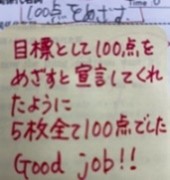 100点をめざす
目標として100点を
めざすと宣言してくれ
たように
5枚全て100点でした
Good job!!